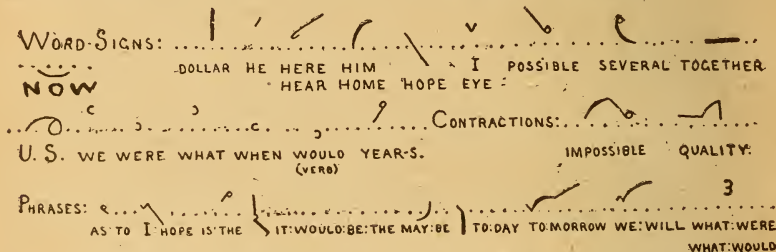 WORD-SIGNS:
NOW DOLLAR HE HERE HIM I POSSIBLE SEVERAL TOGETHER
HEAR HOME HOPE EYE
CONTRACTIONS:
U. S. WE WERE WHAT WHEN WOULD YEAR-S. IMPOSSIBLE QUALITY.
(VERB)
PHRASES:
AS TO I HOPE IS THE IT:WOULD:BE:THE MAY:BE TO:DAY TO:MORROW WE:WILL WHAT:WERE
WHAT:WOULD